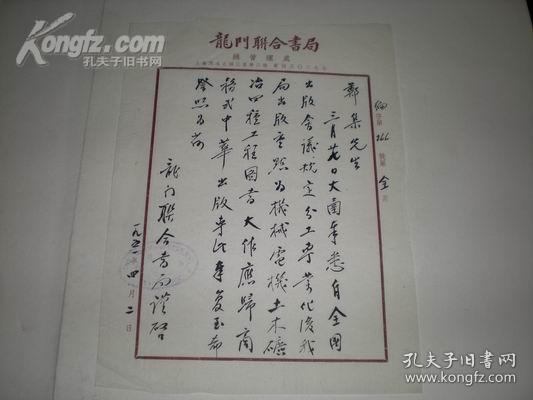 Kongfz.com
孔夫子旧书网
龍門聯合書局
總管理處
鄭集先生
三月廿日大函奉悉自全國
出版會議規定分工專業化後我
局出版重點為機械電機土木礦
冶四種工程圖書大作應歸商
務或中華出版專此奉复至希
詧照為荷
龍门聯合書局謹啓
一九五一年四月二日
字第266號第全頁
孔夫子旧书网
www.kongfz.com